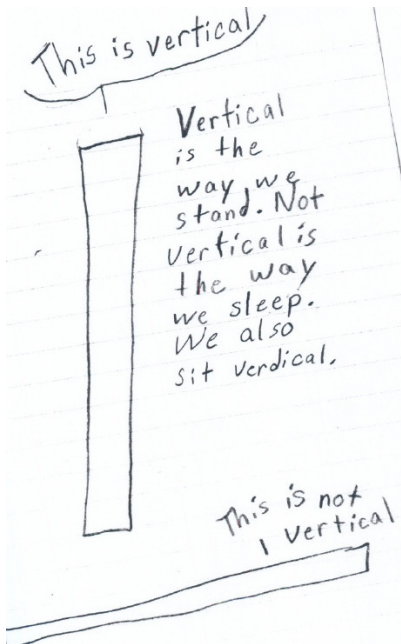 This is vertical
Vertical
is the
way we
stand. Not
vertical is
the way
we sleep.
We also
sit verdical.
This is not
vertical